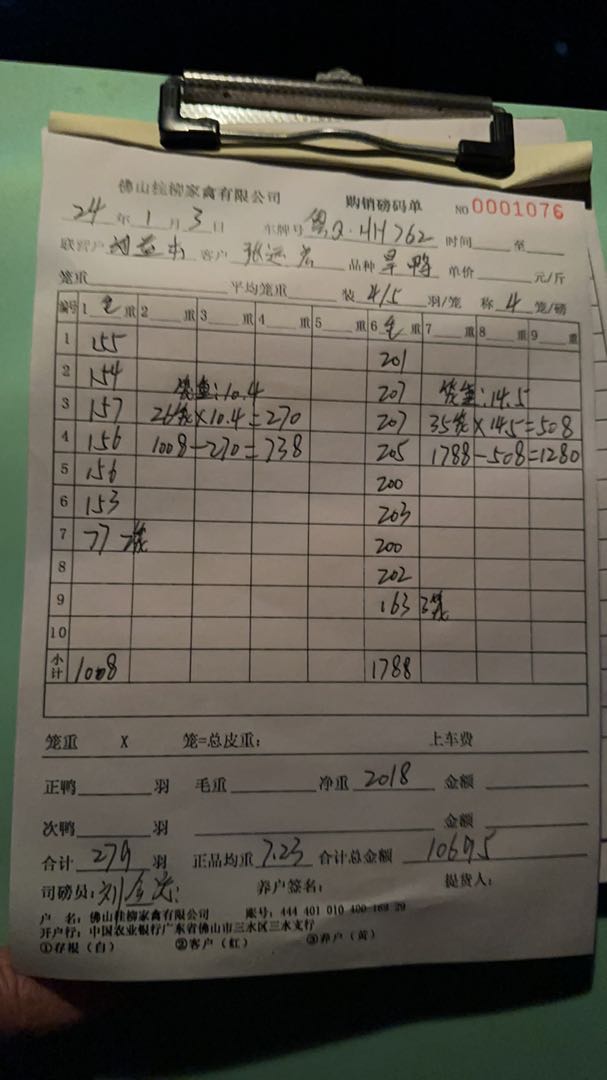 佛山桂柳家禽有限公司 购销磅码单 NO 0001076
24 年 1 月 3 日 车牌号 Q·HH762 时间 至
联营户 客户 张运 品种 旱鸭 单价 元/斤
笼重 平均笼重 装 4/5 羽/笼 称 4 笼/磅
编号 1 毛 重 2 重 3 重 4 重 5 重 6 毛 重 7 重 8 重 9 重
1 155 201
2 154 笼重:10.4 207 笼重:14.5
3 157 26笼×10.4=270 207 35笼×14.5=508
4 156 1008-270=738 205 1788-508=1280
5 156 200
6 153 203
7 77 2笼 200
8 202
9 163 3笼
10
小计 1008 1788
笼重 X 笼=总皮重: 上车费
正鸭 羽 毛重 净重 2018 金额
次鸭 羽 金额
合计 279 羽 正品均重 7.23 合计总金额 10695
司磅员: 刘 养户签名: 提货人:
户 名: 佛山桂柳家禽有限公司 账号: 444 401 010 400 169 29
开户行: 中国农业银行广东省佛山市三水区三水支行
①存根(白) ②客户(红) ③养户(黄)